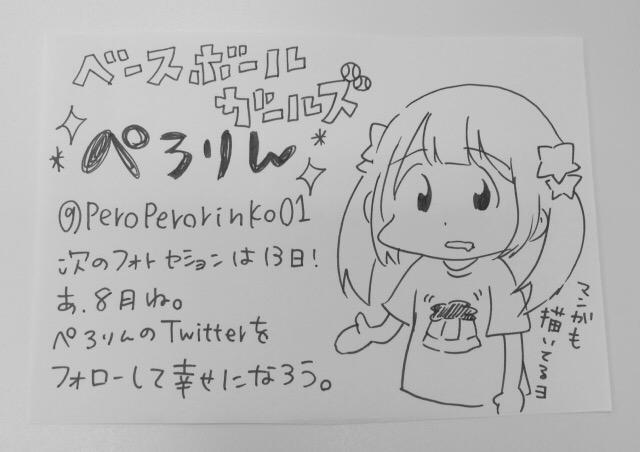 ベースボール
ガールズ
ぺろりん
@PeroPerorinko01
次のフォトセションは13日!
あ、8月ね。
ぺろりんのTwitterを
フォローして幸せになろう。
マンガも
描いてるヨ